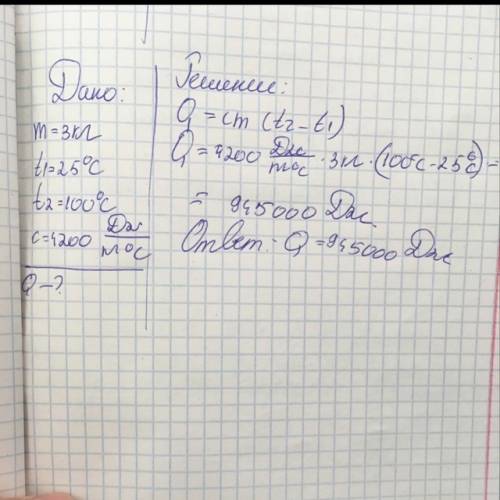 Дано:
m=3кг
t1=25°C
t2=100°C
c=4200 Дж/м°C
Q-?
Решение:
Q=cm(t2-t1)
Q=4200 Дж/м°C·3кг·(100°C-25°C)=
= 945000 Дж.
Ответ: Q=945000 Дж